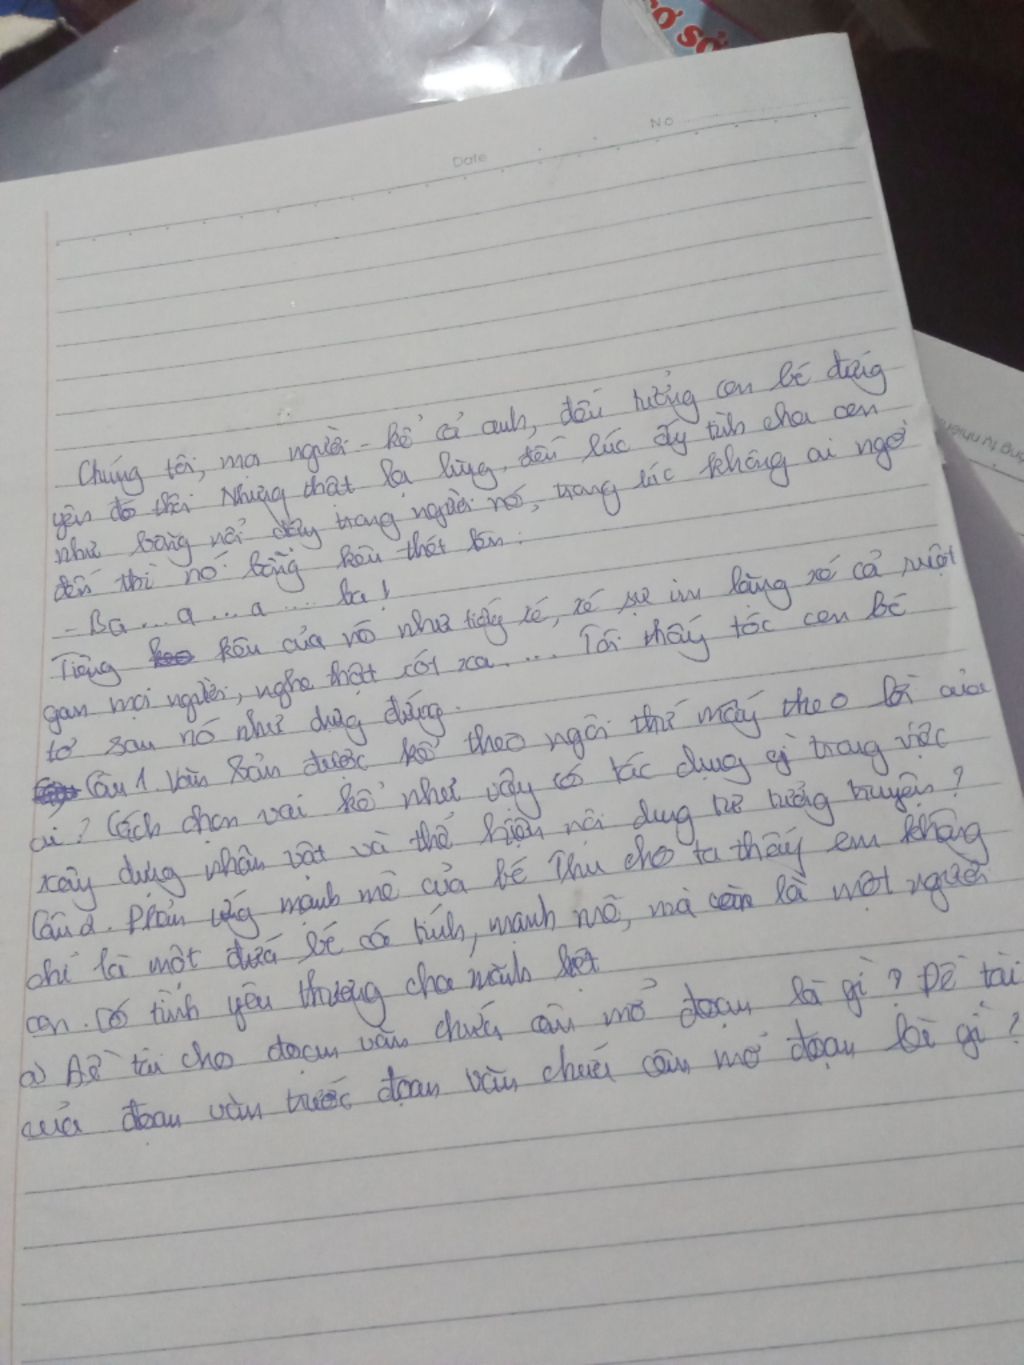 CƠ SỞ
Date
No
Chúng tôi, mọi người - kể cả anh, đều tưởng con bé đứng
yên đó thôi Nhưng thật lạ lùng, đến lúc ấy tình cha con
như bỗng nổi dậy trong người nó, trong lúc không ai ngờ
đến thì nó bỗng kêu thét lên:
- Ba ... a ... a .... ba!
Tiếng kêu của nó như tiếng xé, xé sự im lặng xé cả ruột
gan mọi người, nghe thật xót xa .... Tôi thấy tóc con bé
tơ sau nó như dựng đứng.
Câu 1. Văn bản được kể theo ngôi thứ mấy theo lời của
ai? Cách chọn vai kể như vậy có tác dụng gì trong việc
xây dựng nhân vật và thể hiện nội dung tư tưởng truyện?
Câu 2. Phản ứng mạnh mẽ của bé Thu cho ta thấy em không
chỉ là một đứa bé cá tính, mạnh mẽ, mà còn là một người
con. Có tình yêu thương cha mãnh liệt
a) Đề tài cho đoạn văn chứa câu mở đoạn là gì? Đề tài
của đoạn văn trước đoạn văn chứa câu mở đoạn là gì?